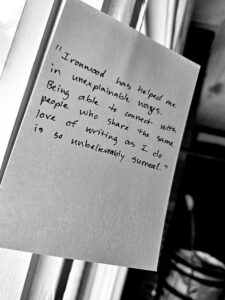 "Ironwood has helped me
in unexplainable ways.
Being able to connect with
people who share the same
love of writing as I do
is so unbelievably surreal."